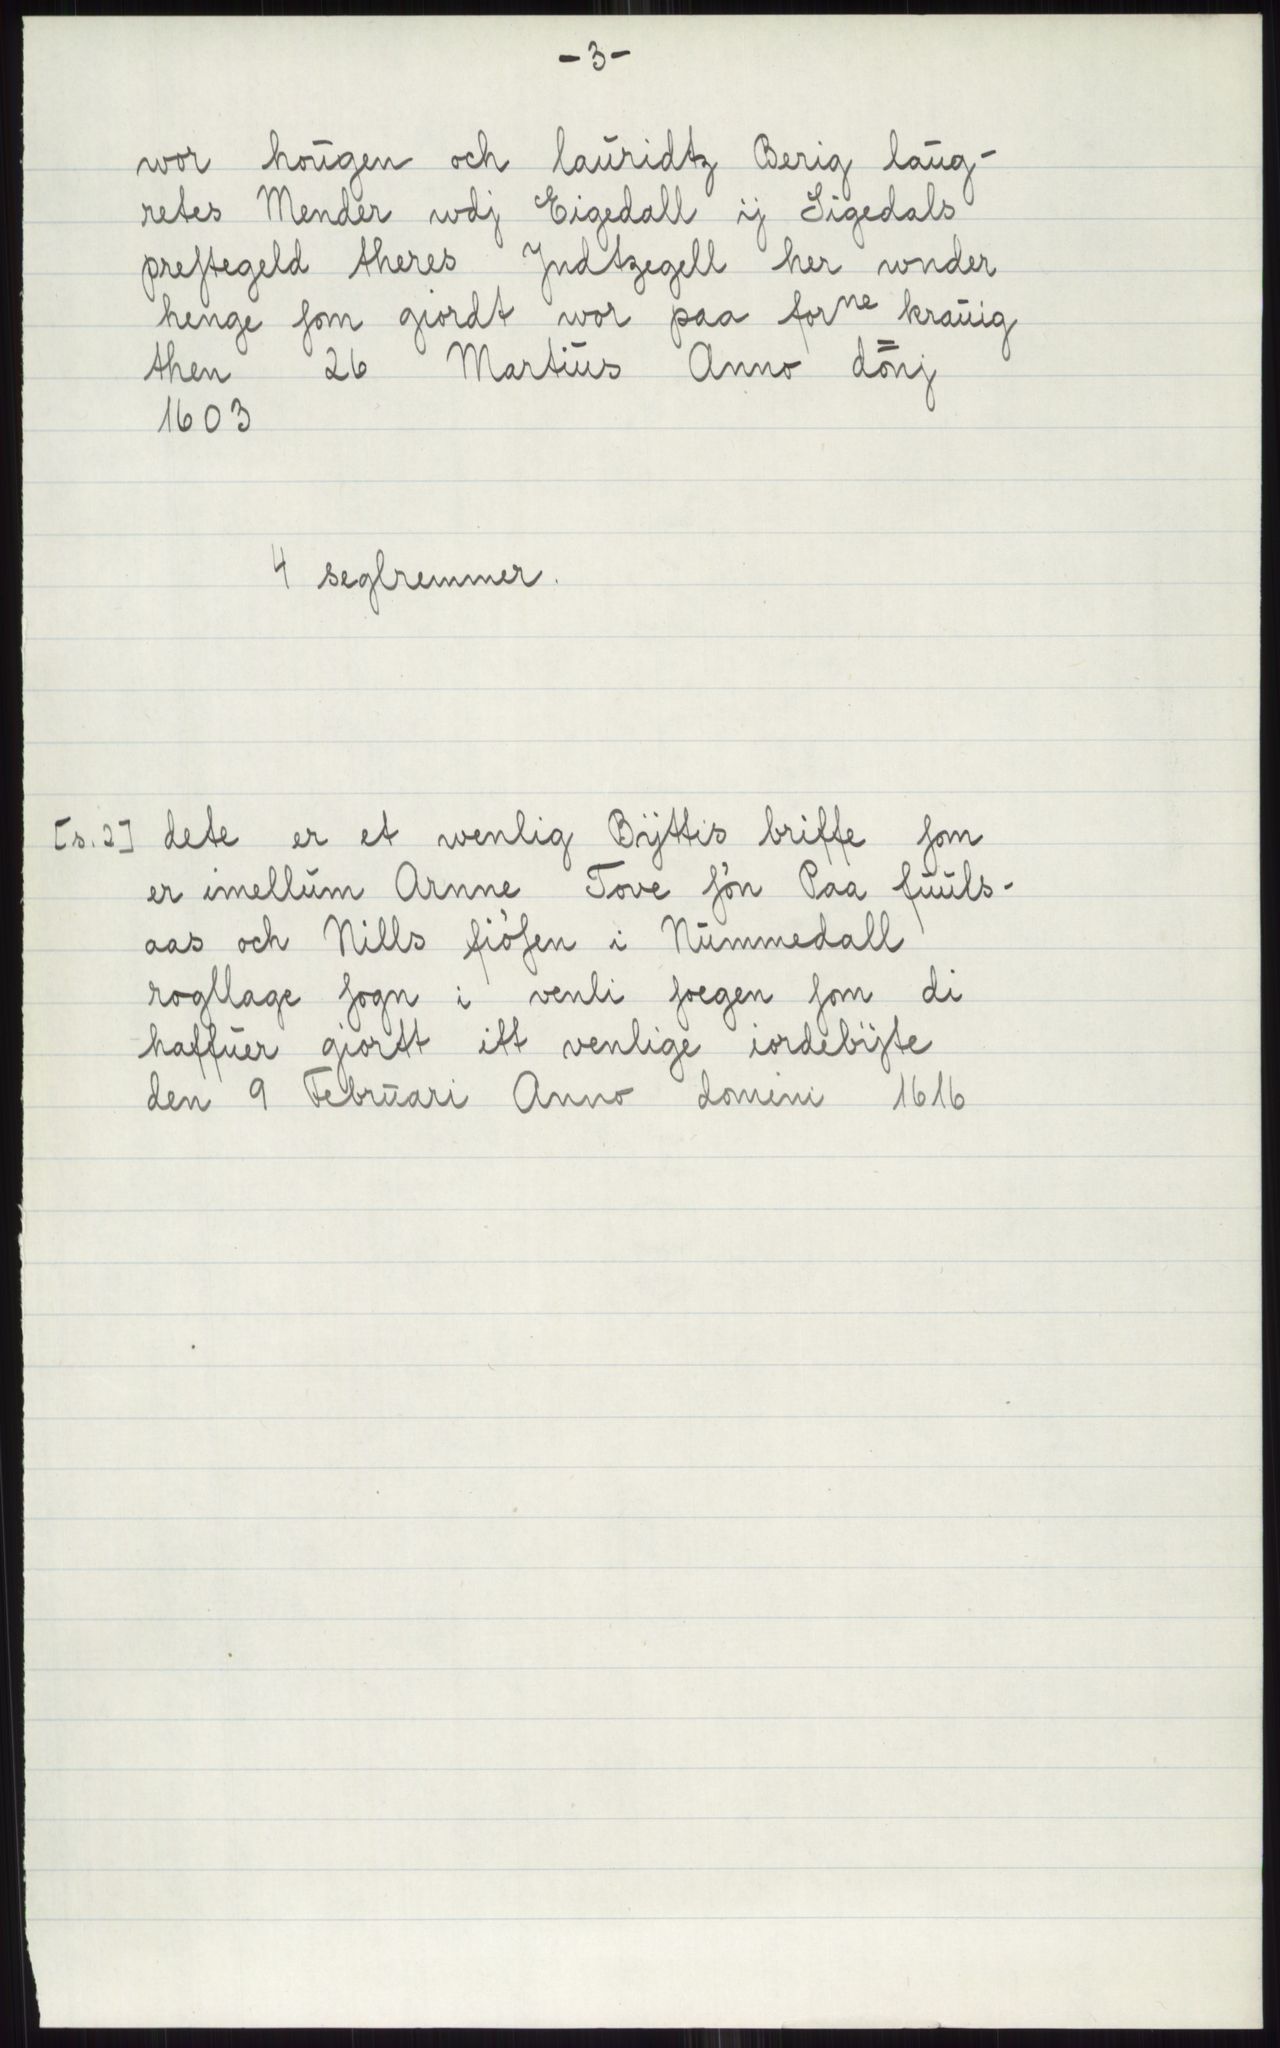 - 3 -
wor hoūgen och laūridtz Berig laūg-
retes Mender wdj Eigedall ij Sigedals
preſtegeld theres Jndtzegell her wnder
henge ſom giordt wor paa forne kraūig
then 26 Martiūs Anno dōnj
1603
4 seglremmer.
[s. 2] dete er et wenlig Bÿttis briffe ſom
er imellūm Arnne Tove ſøn Paa fūūls-
aas och Nills fiøſen i Nūmmedall
rogllage ſogn i venli ſoegen ſom di
haffūer giortt itt venlige iordebÿte
den 9 Febrūari Anno domini 1616